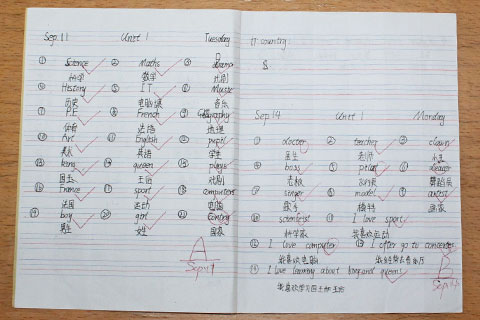 Sep 11 Unit 1 Tuesday
① Science ② Maths ③ drama
科学 数学 戏剧
④ History ⑤ IT ⑥ Music
历史 电脑课 音乐
⑦ P.E ⑧ French ⑨ Geography
体育 法语 地理
⑩ Art ⑪ English ⑫ pupil
美术 英语 学生
⑬ king ⑭ queen ⑮ plays
国王 王后 戏剧
⑯ France ⑰ sport ⑱ computers
法国 运动 电脑
⑲ boy ⑳ girl ㉑ country
男生 女生 国家
A
Sep
IT country
8
Sep 14 Unit 1 Monday
① doctor ② teacher ③ clown
医生 老师 小丑
④ boss ⑤ pilot ⑥ dancer
老板 飞行员 舞蹈员
⑦ singer ⑧ model ⑨ artist
歌手 模特 画家
⑩ scientist ⑪ I love sport
科学家 我喜欢运动
⑫ I love computer ⑬ I often go to concerts
我喜欢电脑
⑭ I love learning about kings and queens
我喜欢学习国王和王后
B
Sep